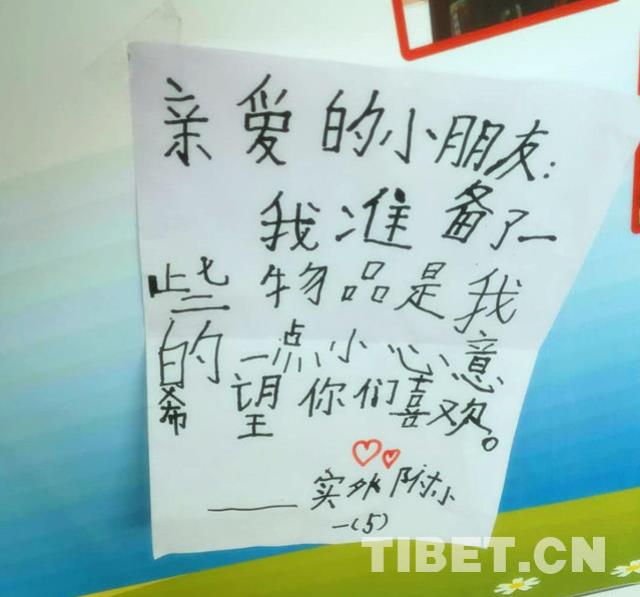 亲爱的小朋友:
我准备了一
些物品是我
的一点小心意
希望你们喜欢。
——实外附小
一(5)
TIBET.CN